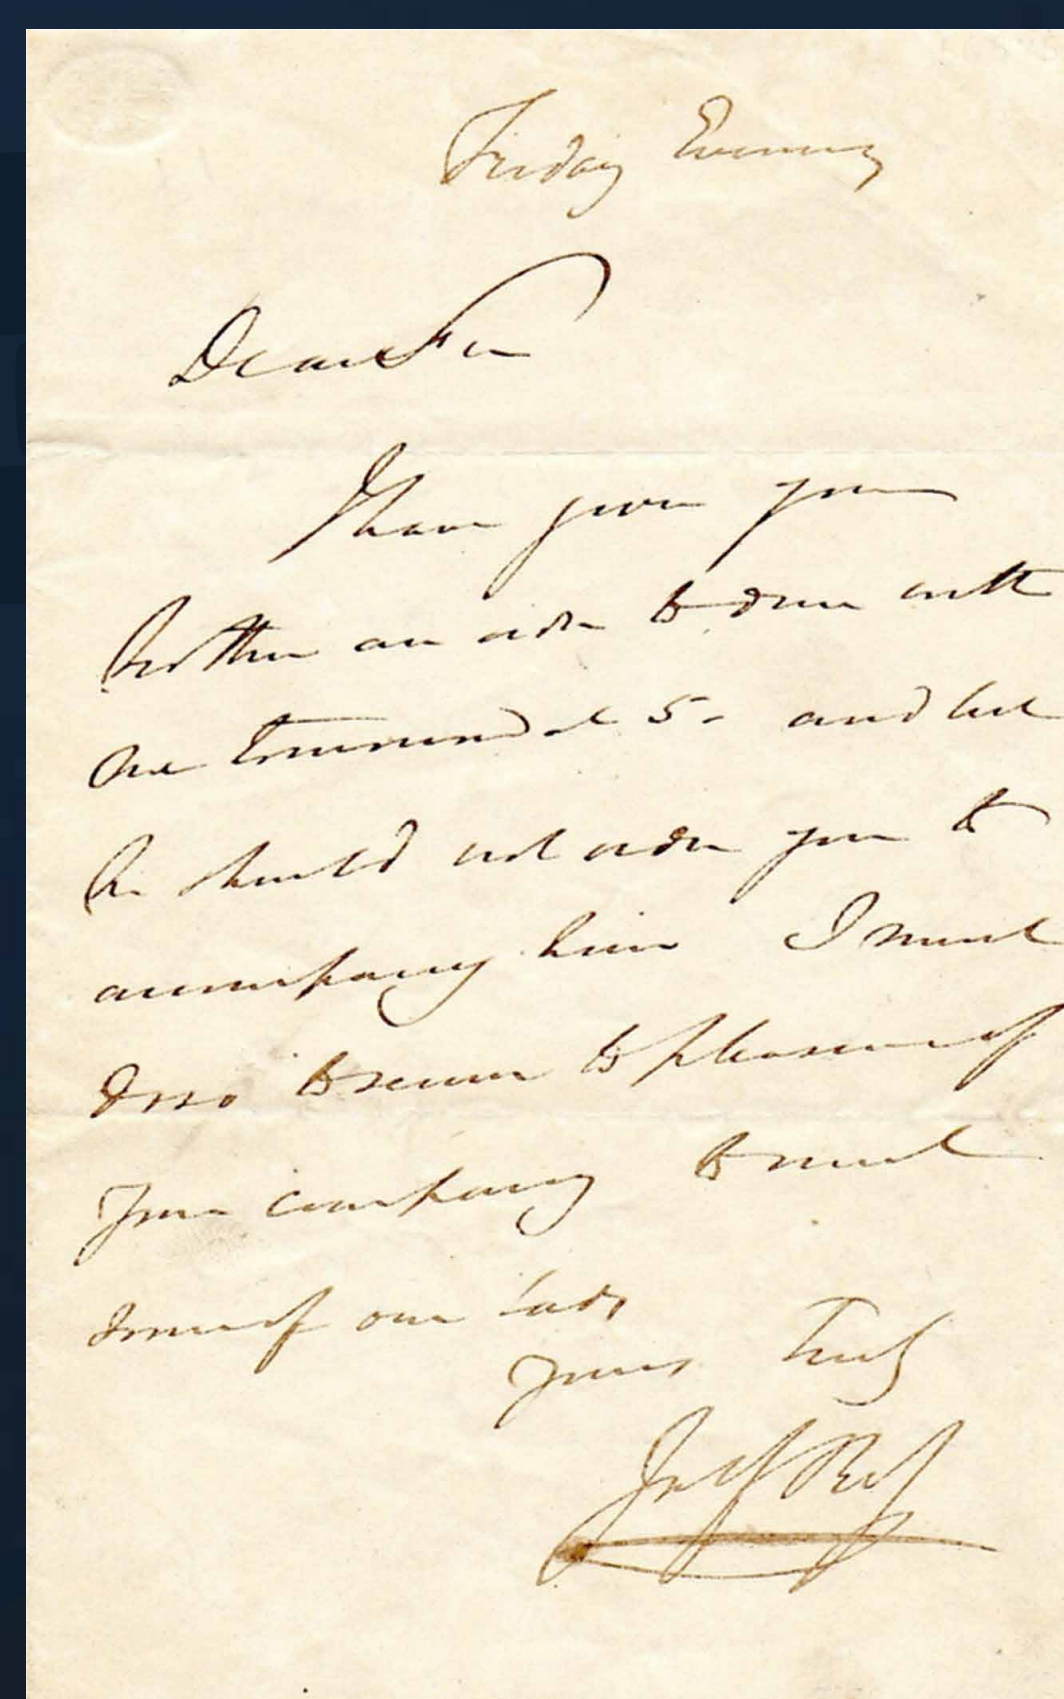 Friday Evening
Dear Sir
I have given your
brother an order to dine with
me tomorrow at 5 - and lest
he should not order you to
accompany him I must
do so to secure the pleasure of
your company to meet
some of our lads
Yours Truly